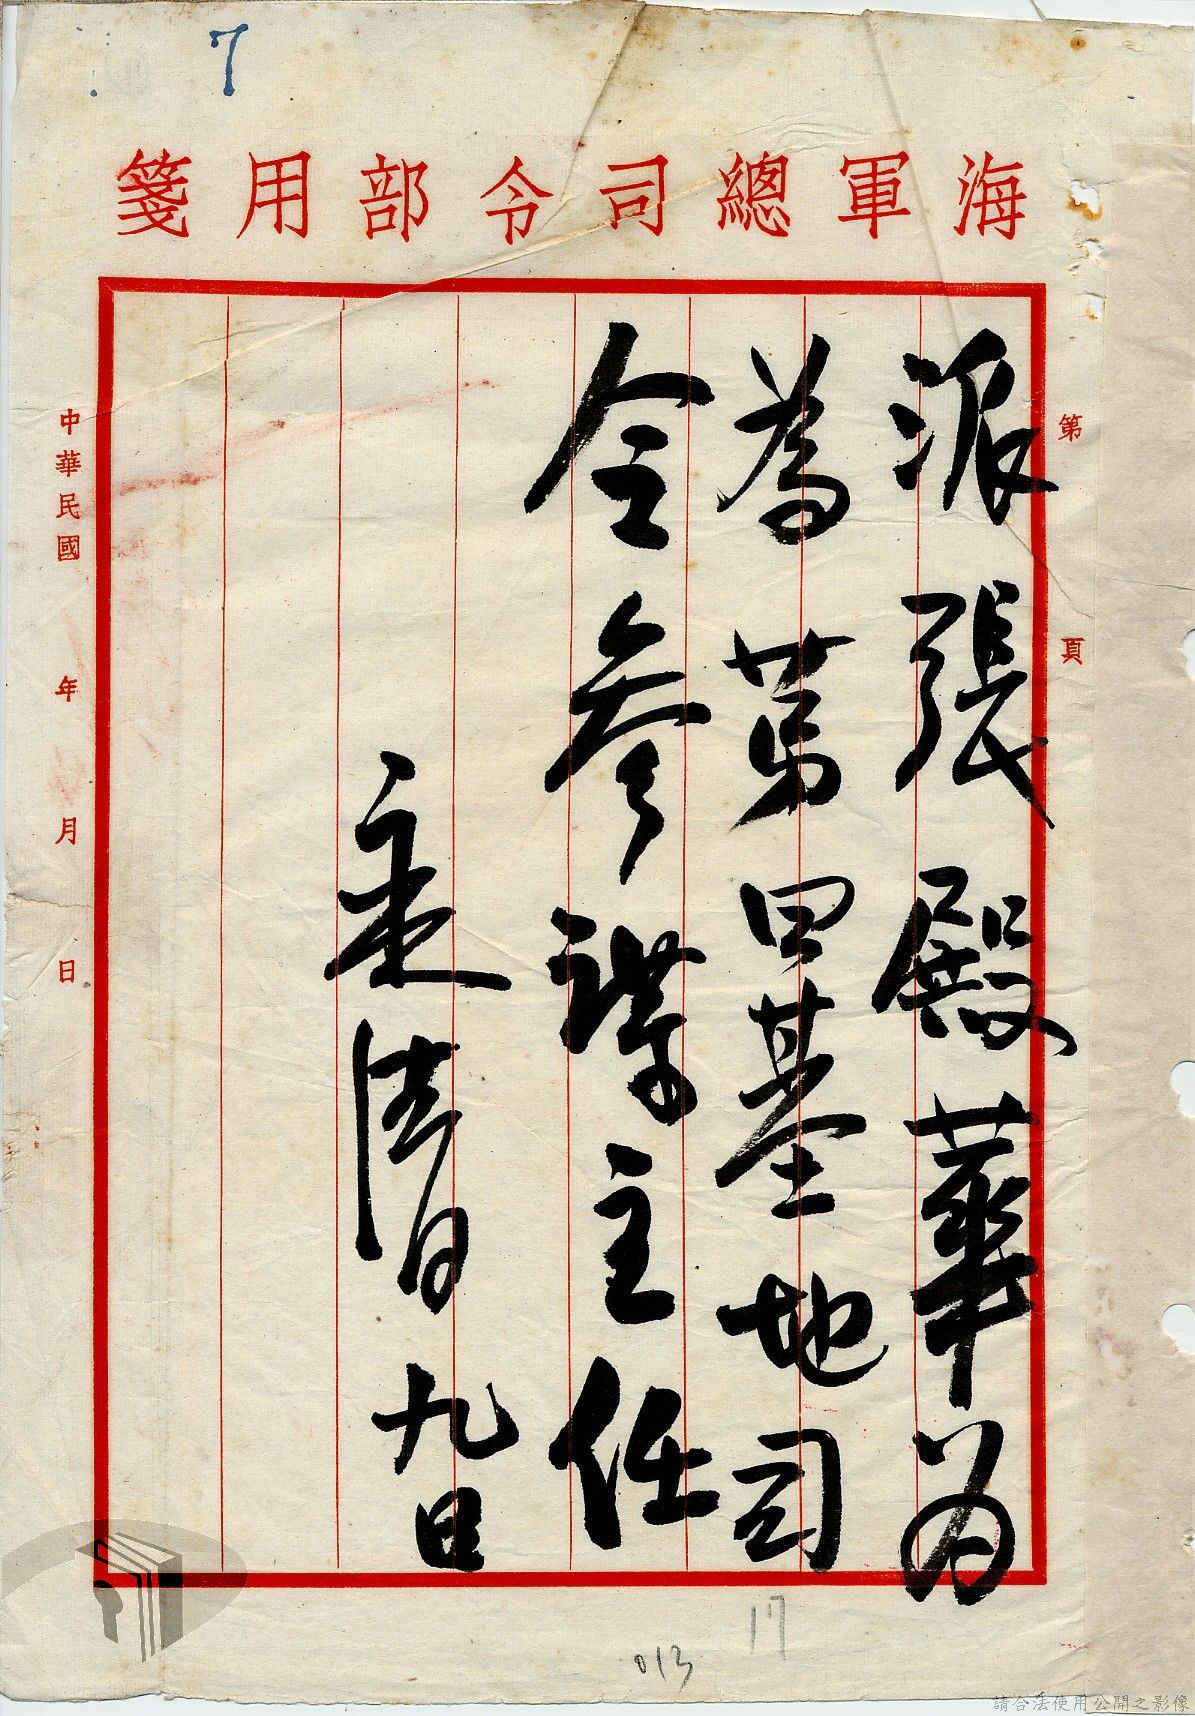 海軍總司令部用箋
7
第 頁
派張殿華
為第四基地司
令參謀主任
永清 九日
中華民國 年 月 日
17
013
請合法使用公開之影像